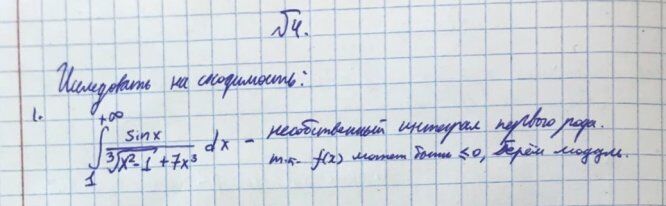 №4.
Исследовать на сходимость:
1. ∫₁^{+∞} sinx / (∛(x²-1) + 7x³) dx - несобственный интеграл первого рода.
т.к. f(x) может быть ≤0, берём модуль.